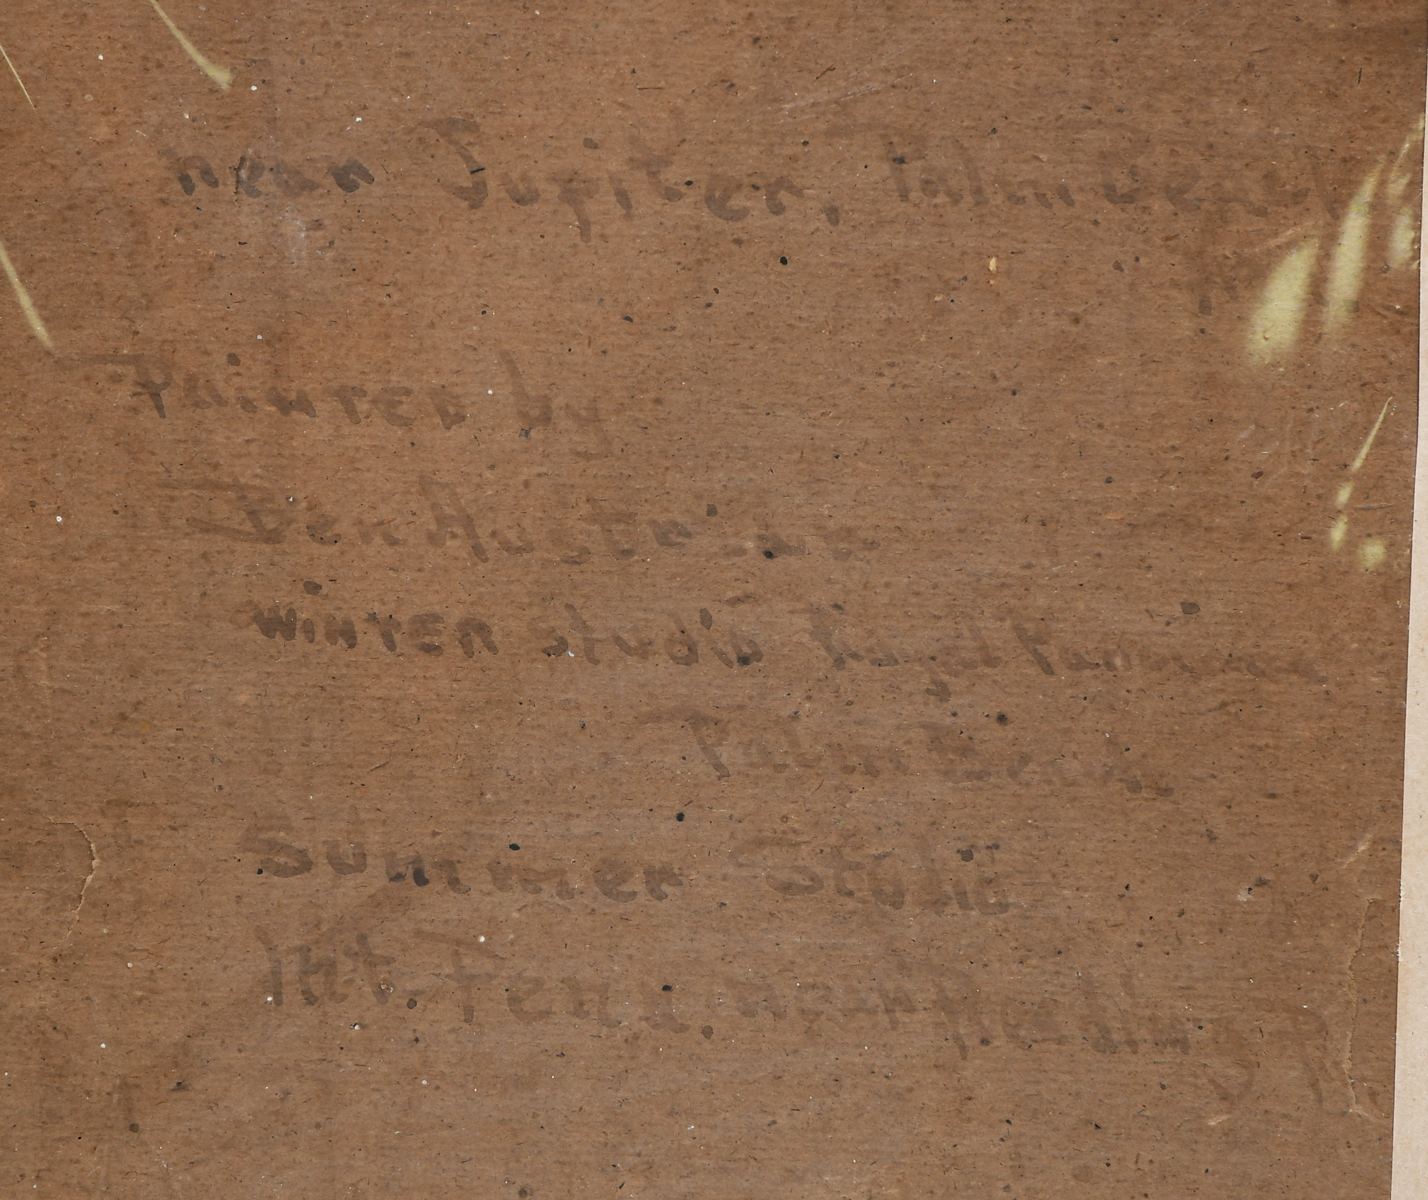 near Jupiter, Palm Beach
Painted by
Ben Austrian
winter studio
Palm Beach
summer studio
Mt. Penn, near Reading Pa